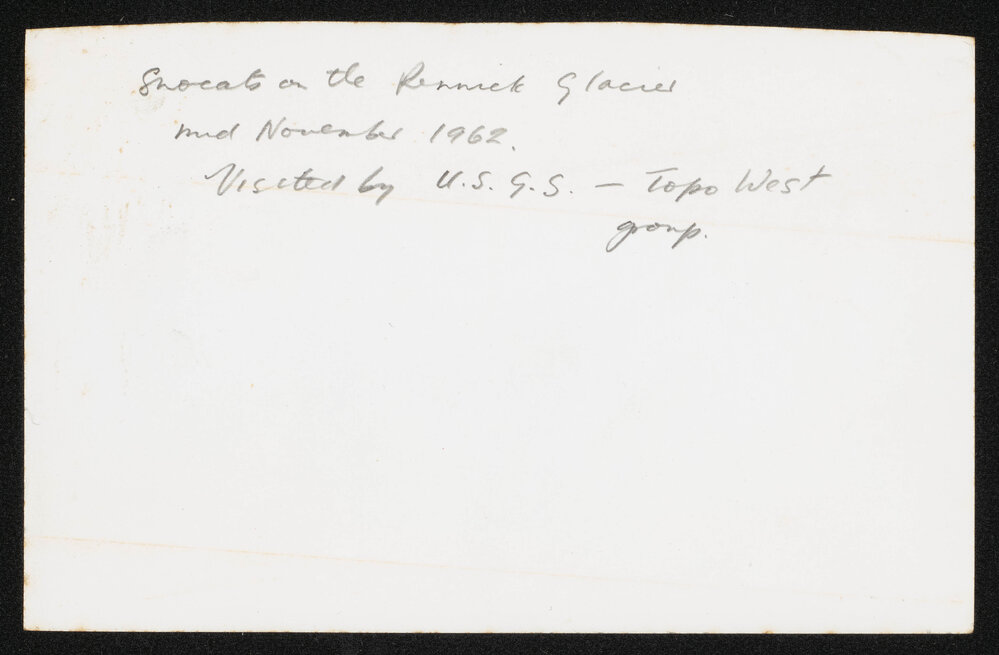 Snocats on the Rennick Glacier
mid November 1962.
Visited by U.S.G.S. — Topo West
group.